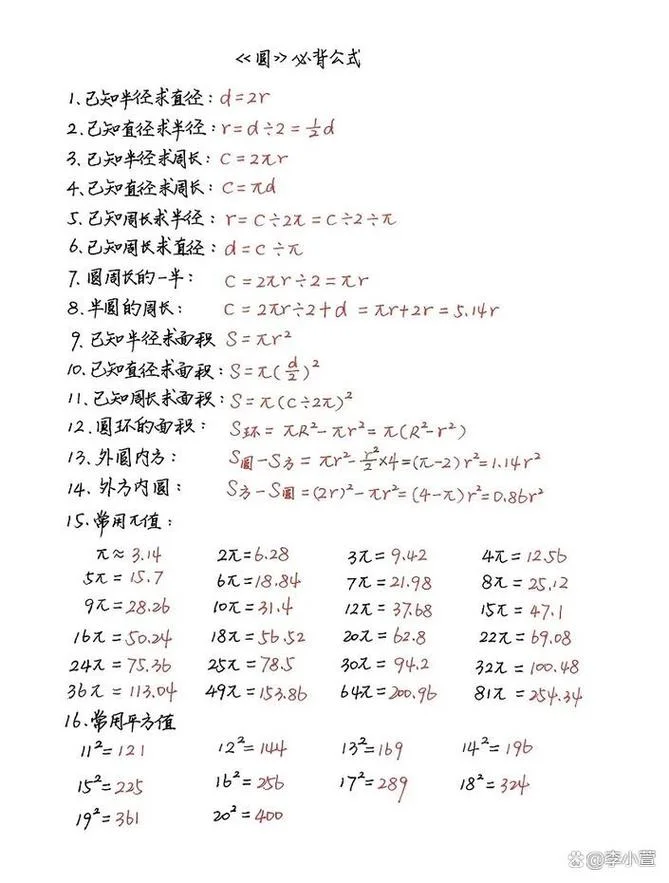 《圆》必背公式
1.已知半径求直径：d=2r
2.已知直径求半径：r=d÷2=½d
3.已知半径求周长：C=2πr
4.已知直径求周长：C=πd
5.已知周长求半径：r=C÷2π=C÷2÷π
6.已知周长求直径：d=C÷π
7.圆周长的一半：C=2πr÷2=πr
8.半圆的周长：C=2πr÷2+d=πr+2r=5.14r
9.已知半径求面积 S=πr²
10.已知直径求面积：S=π(d/2)²
11.已知周长求面积：S=π(C÷2π)²
12.圆环的面积：S环=πR²-πr²=π(R²-r²)
13.外圆内方：S圆-S方=πr²-r²/2×4=(π-2)r²=1.14r²
14.外方内圆：S方-S圆=(2r)²-πr²=(4-π)r²=0.86r²
15.常用π值：
π≈3.14 2π=6.28 3π=9.42 4π=12.56
5π=15.7 6π=18.84 7π=21.98 8π=25.12
9π=28.26 10π=31.4 12π=37.68 15π=47.1
16π=50.24 18π=56.52 20π=62.8 22π=69.08
24π=75.36 25π=78.5 30π=94.2 32π=100.48
36π=113.04 49π=153.86 64π=200.96 81π=254.34
16.常用平方值
11²=121 12²=144 13²=169 14²=196
15²=225 16²=256 17²=289 18²=324
19²=361 20²=400
@李小萱